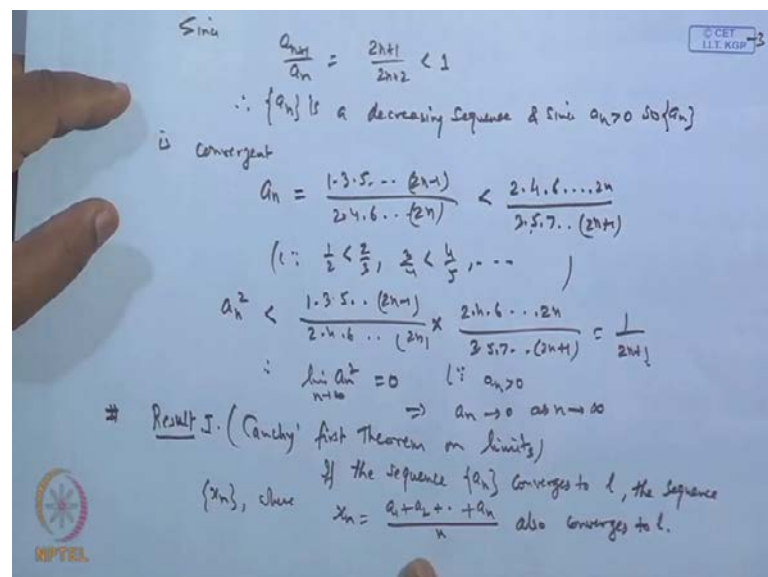 Since
© CET
I.I.T. KGP -3
a_{n+1}/a_n = (2n+1)/(2n+2) < 1
∴ {a_n} is a decreasing sequence & since a_n>0 so {a_n}
is convergent
a_n = (1·3·5·-·(2n-1))/(2·4·6··(2n)) < (2·4·6·...·2n)/(3·5·7··(2n+1))
(∵ 1/2 < 2/3, 3/4 < 4/5, --- )
a_n^2 < (1·3·5··(2n-1))/(2·4·6··(2n)) × (2·4·6···2n)/(3·5·7-·(2n+1)) = 1/(2n+1)
∴ lim_{n→∞} a_n^2 = 0 (∵ a_n>0
⇒ a_n → 0 as n→∞
# Result I. (Cauchy' first Theorem on limits)
If the sequence {a_n} converges to l, the sequence
{x_n}, where x_n = (a_1+a_2+··+a_n)/n also converges to l.
NPTEL